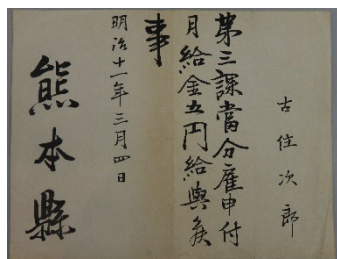 古住次郎
第三課當分雇申付
月給金五円給與候
事
明治十一年三月四日
熊本縣